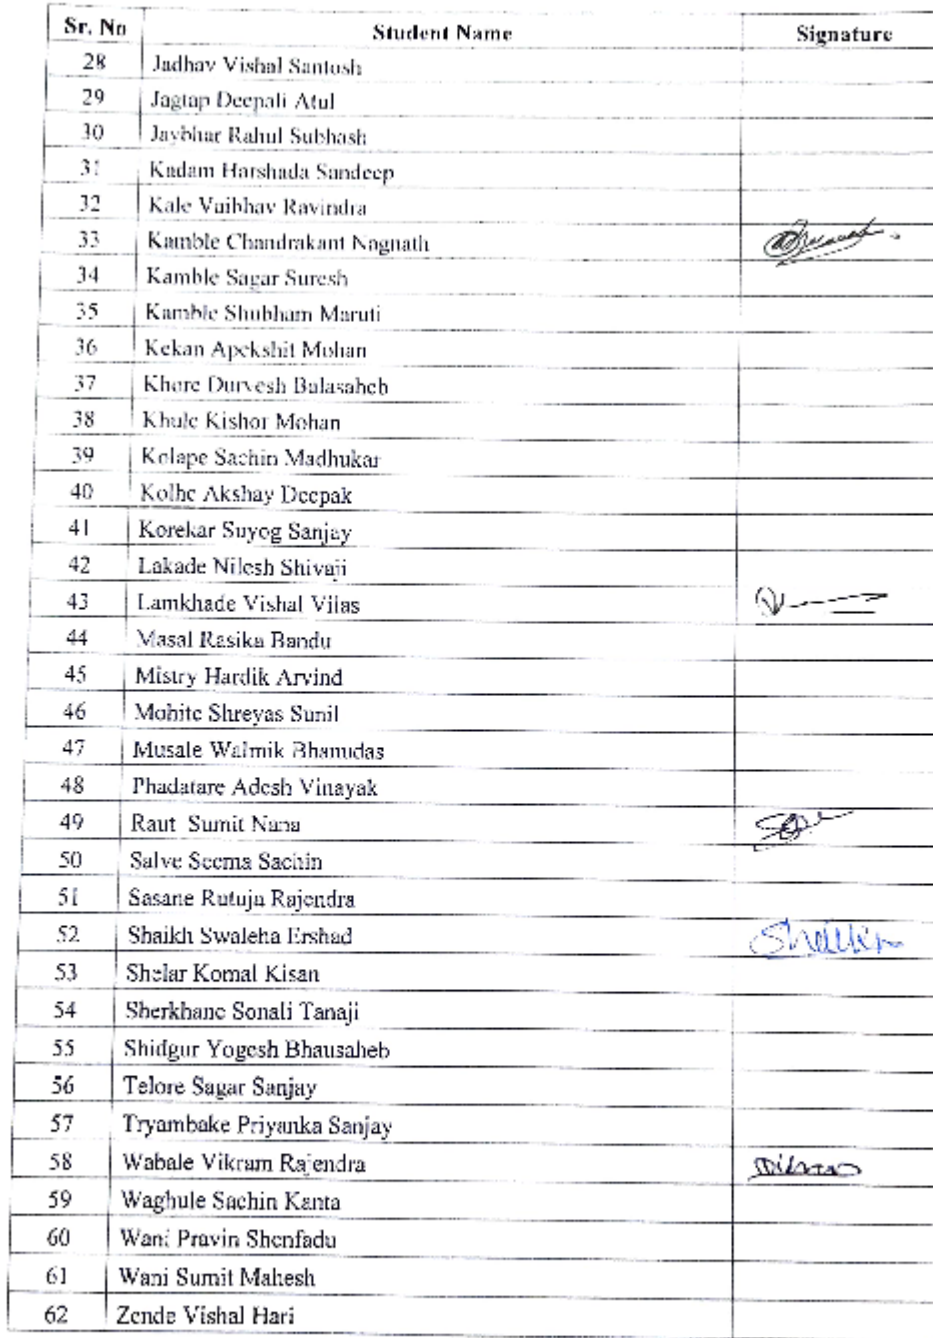 Sr. No Student Name Signature
28 Jadhav Vishal Santosh
29 Jagtap Deepali Atul
30 Jaybhar Rahul Subhash
31 Kadam Harshada Sandeep
32 Kale Vaibhav Ravindra
33 Kamble Chandrakant Nagnath
34 Kamble Sagar Suresh
35 Kamble Shubham Maruti
36 Kekan Apekshit Mohan
37 Khore Durvesh Balasaheb
38 Khule Kishor Mohan
39 Kolape Sachin Madhukar
40 Kolhe Akshay Deepak
41 Korekar Suyog Sanjay
42 Lakade Nilesh Shivaji
43 Lamkhade Vishal Vilas
44 Masal Rasika Bandu
45 Mistry Hardik Arvind
46 Mohite Shreyas Sunil
47 Musale Walmik Bhanudas
48 Phadatare Adesh Vinayak
49 Raut Sumit Nana
50 Salve Seema Sachin
51 Sasane Rutuja Rajendra
52 Shaikh Swaleha Ershad Shaikh
53 Shelar Komal Kisan
54 Sherkhane Sonali Tanaji
55 Shidgur Yogesh Bhausaheb
56 Telore Sagar Sanjay
57 Tryambake Priyanka Sanjay
58 Wabale Vikram Rajendra
59 Waghule Sachin Kanta
60 Wani Pravin Shenfadu
61 Wani Sumit Mahesh
62 Zende Vishal Hari